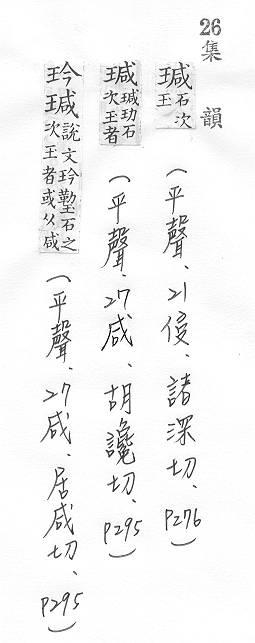 26 集韻
瑊 石次王 (平聲、21侵、諸深切、P276)
瑊 瑊玏石次王者 (平聲、27咸、胡讒切、P295)
玪瑊 說文玪䥯石之次王者或从咸 (平聲、27咸、居咸切、P295)